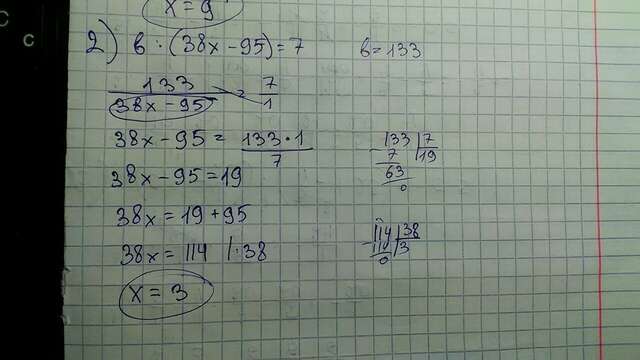 x = 9
2) b : (38x - 95) = 7 b = 133
133 / 38x - 95 = 7 / 1
38x - 95 = 133 · 1 / 7
38x - 95 = 19
38x = 19 + 95
38x = 114 | : 38
x = 3
133 | 7
- 7 | 19
63
0
114 | 38
- 114 | 3
0